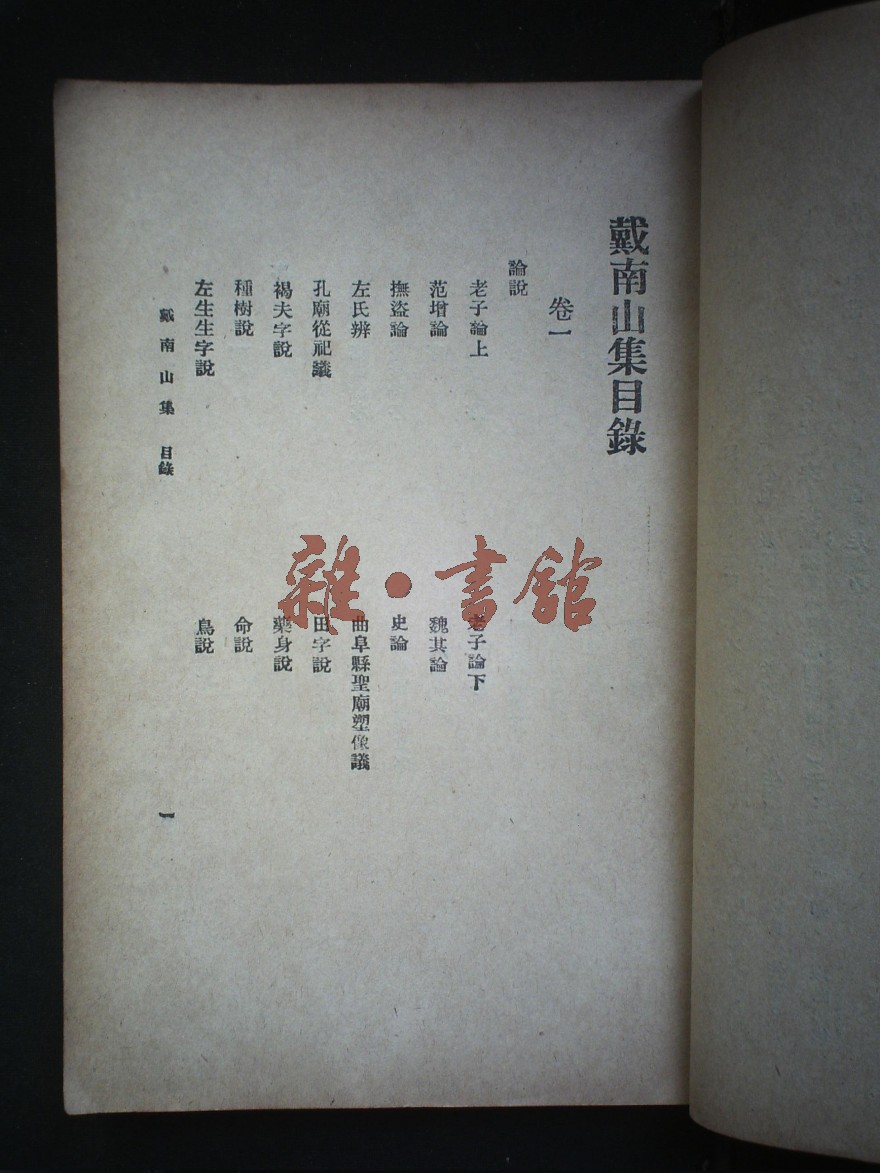 戴南山集目錄
卷一
論說
老子論上
老子論下
范增論
魏其論
撫盜論
史論
左氏辨
曲阜縣聖廟塑像議
孔廟從祀議
田字說
褐夫字說
藥身說
種樹說
命說
左生生字說
鳥說
戴南山集 目錄
一
雜·書舘